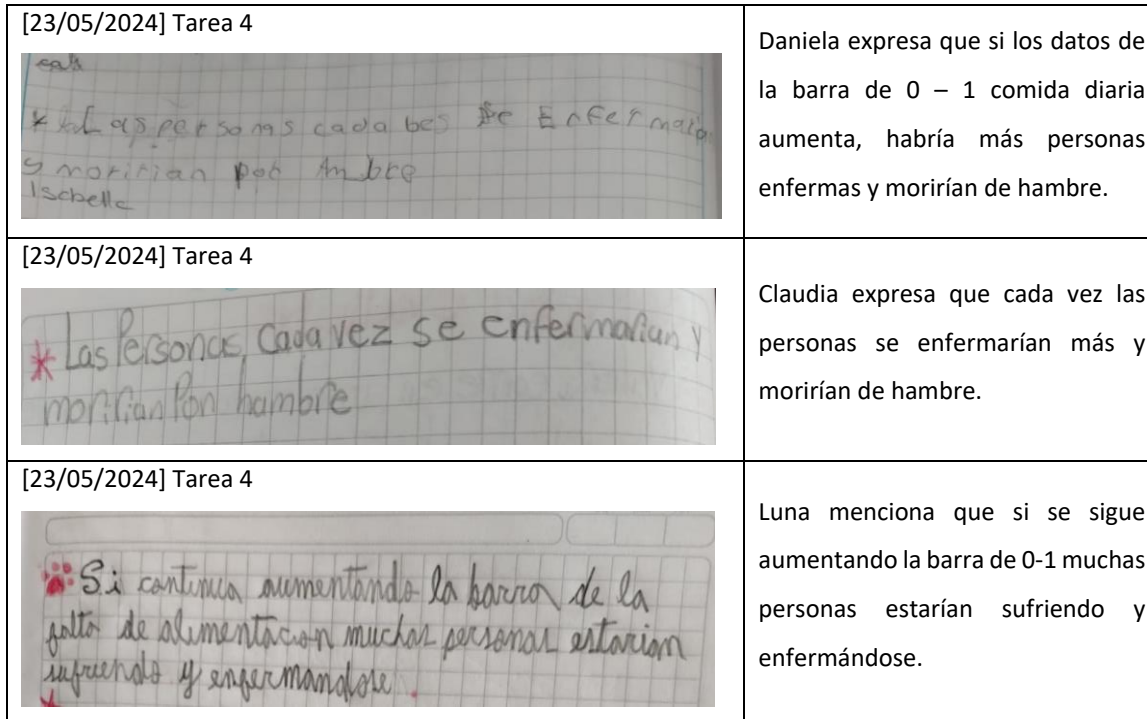 [23/05/2024] Tarea 4
* Las personas cada bes se Enfermaria
y moririan por Ambre
Isabella
Daniela expresa que si los datos de
la barra de 0 – 1 comida diaria
aumenta, habría más personas
enfermas y morirían de hambre.
[23/05/2024] Tarea 4
* Las Personas Cada vez se enfermarian y
moririan Por hambre
Claudia expresa que cada vez las
personas se enfermarían más y
morirían de hambre.
[23/05/2024] Tarea 4
Si continua aumentando la barra de la
falta de alimentacion muchas personas estarian
sufriendo y enfermandose.
Luna menciona que si se sigue
aumentando la barra de 0-1 muchas
personas estarían sufriendo y
enfermándose.